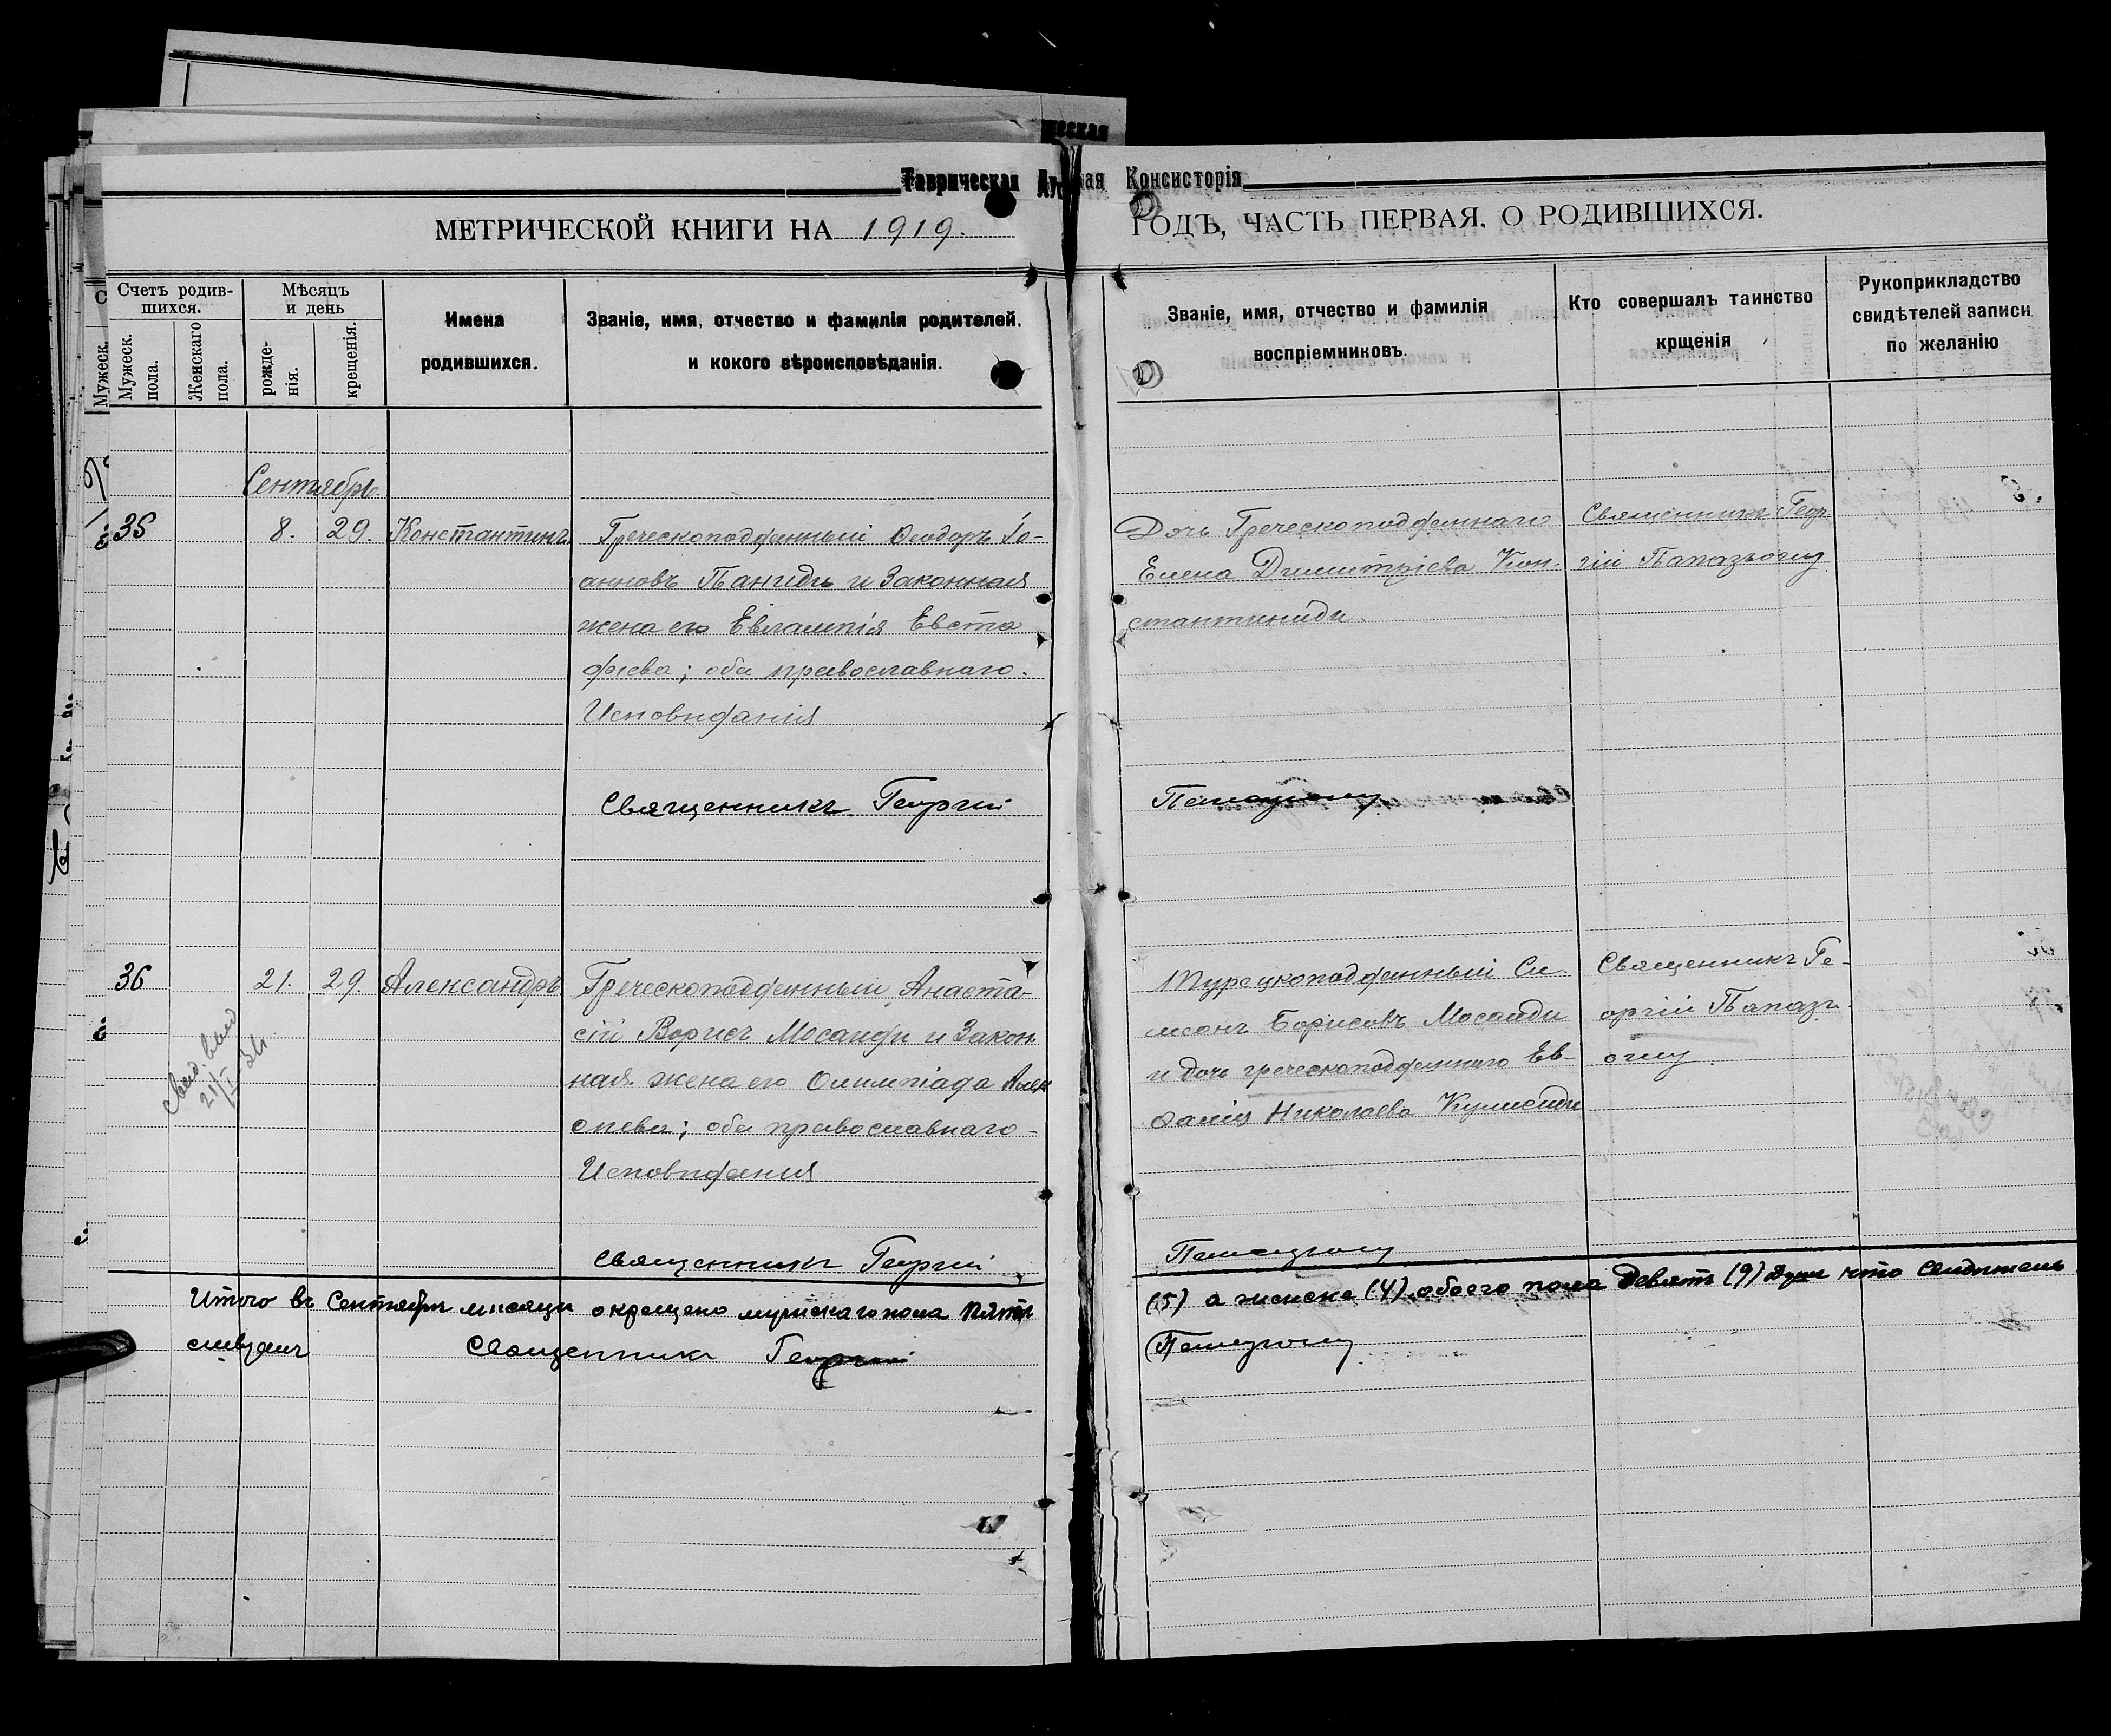 Таврическая Ду
ная Консисторія
МЕТРИЧЕСКОЙ КНИГИ НА 1919.
ГОДЪ, ЧАСТЬ ПЕРВАЯ, О РОДИВШИХСЯ.
Счетъ родив-
шихся.
Мужеск.
пола.
Женскаго
пола.
Мѣсяцъ
и день
рожде-
нія.
крещенія.
Имена
родившихся.
Званіе, имя, отчество и фамилія родителей,
и кокого вѣроисповѣданія.
Званіе, имя, отчество и фамилія
воспріемниковъ.
Кто совершалъ таинство
крщенія
Рукоприкладство
свидѣтелей записи
по желанію
Сентябрь
35 8. 29. Константинъ
Греческоподданный Ѳеодоръ Іо-
анновъ Пангиди и Законная
жена его Евлампія Евста
фіева; оба православнаго.
Исповѣданія
Дочь Греческоподданнаго
Елена Димитріева Кон-
стантиниди.
Священникъ Геор-
гій Папазъоглу
Священникъ Георгій
Папазъоглу
36 21. 29. Александръ
Греческоподданный Анаста-
сій Ворисъ Мосаиди и Закон
ная жена его Олимпіада Алек
сѣева; оба православнаго-
Исповѣданія
Турецкоподданный Си-
меонъ Борисовъ Мосаиди
и дочь греческоподданнаго Ев-
Николаева
Священникъ Ге-
оргій Папазъ
оглу
Священникъ Георгій
Папазъоглу
Итого въ Сентябрѣ мѣсяцѣ окрещено мужескаго пола пять
(5) а женска (4) обоего пола Девять (9) душ что свидѣтель
Священникъ Георгій
Папазъоглу